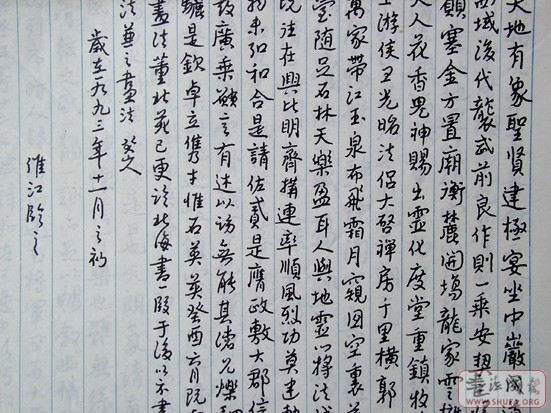 天地有象聖賢建極宴坐中巖
西域後代襲武前良作則一乘安契
額塞金方置廟衡麓開場龍家雲
天人花香鬼神賜出靈化度堂重鎮牧
上游侯尹光昭法侶大啓禪房千里橫郭
萬家帶江玉泉布飛霜月窺囧空裏
瑩隨足石林天樂盈耳人與地靈心將法
注在興比明齊搆連率順風烈功莫
物未弘和合是請佐貳是膺政敷大郡信
廣乘額言有述以訪無能其德允爍
是欽卓立雋才惟石英英癸酉六月既
畫法董北苑已更詒北海書一段于後以示書
法兼之畫法
歲在一九九三年十一月之初
維江臨之
WWW.SHUFA.ORG